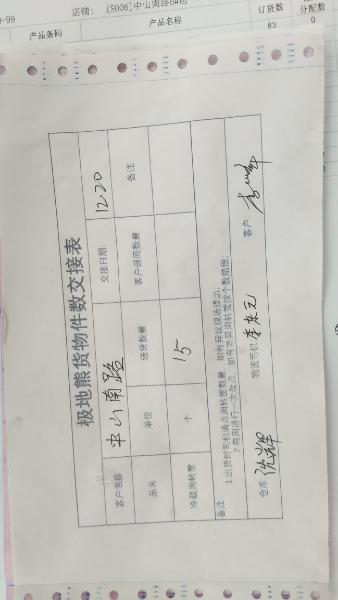 店铺: [S006]中山南路
订货数
分配数
产品条码
产品名称
83
0
极地熊货物件数交接表
客户名称
中山南路
交接日期:
12.20
品名
单位
送货数量
客户退回数量
备注
冷藏周转筐
个
15
备注
1.出货时司机清点周转筐数量,如有异议现场提出;
2.每周进行一次盘点,如有差异周转筐按个数赔偿;
仓库
物流司机
客户